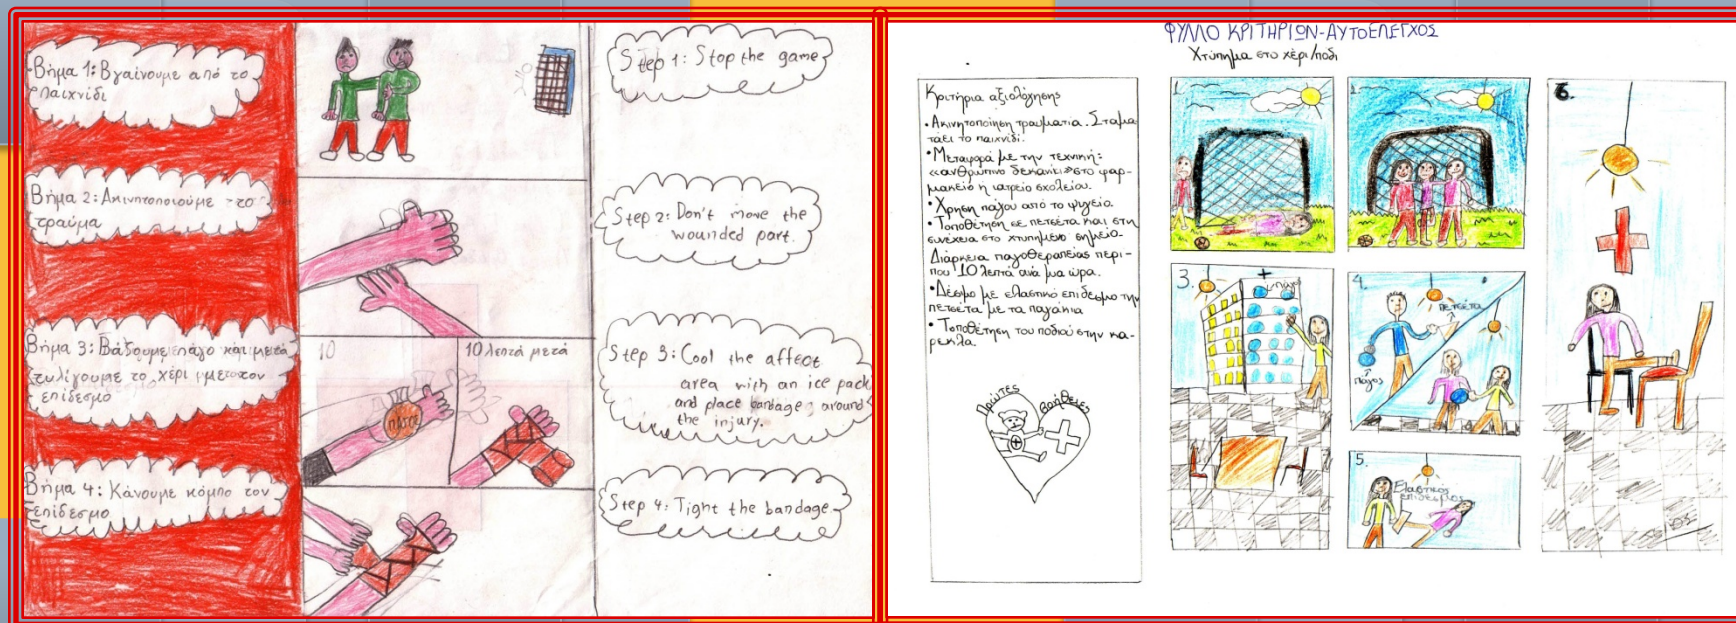 Βήμα 1: Βγαίνουμε από το
παιχνίδι
Βήμα 2: Ακινητοποιούμε το
τραύμα
Βήμα 3: Βάζουμε πάγο και μετά
τυλίγουμε το χέρι με τον
επίδεσμο
Βήμα 4: Κάνουμε κόμπο τον
επίδεσμο
10
10 λεπτά μετά
Step 1: Stop the game
Step 2: Don't move the
wounded part.
Step 3: Cool the affect
area with an ice pack
and place bandage around
the injury.
Step 4: Tight the bandage
ΦΥΛΛΟ ΚΡΙΤΗΡΙΩΝ-ΑΥΤΟΕΛΕΓΧΟΣ
Χτύπημα στο χέρι/πόδι
Κριτήρια αξιολόγησης
• Ακινητοποίηση τραυματία. Σταμα-
τάει το παιχνίδι.
• Μεταφορά με την τεχνική:
«ανθρώπινο δεκανίκι» στο φαρ-
μακείο ή ιατρείο σχολείου.
• Χρήση πάγου από το ψυγείο.
• Τοποθέτηση σε πετσέτα και στη
συνέχεια στο χτυπημένο σημείο-
Διάρκεια παγοθεραπείας περί-
που 10 λεπτά ανά μια ώρα.
• Δέσιμο με ελαστικό επίδεσμο την
πετσέτα με τα παγάκια
• Τοποθέτηση του ποδιού στην κα-
ρέκλα.
Πρώτες Βοήθειες
3.
4.
πετσέτα
πάγος
5.
Ελαστικός
επίδεσμος
6.